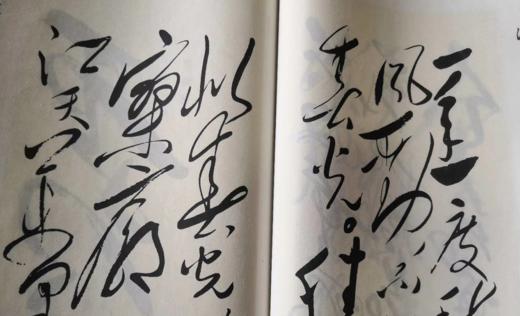 一年一度秋
风劲不
春光。胜
似春光
寥廓
江天万里